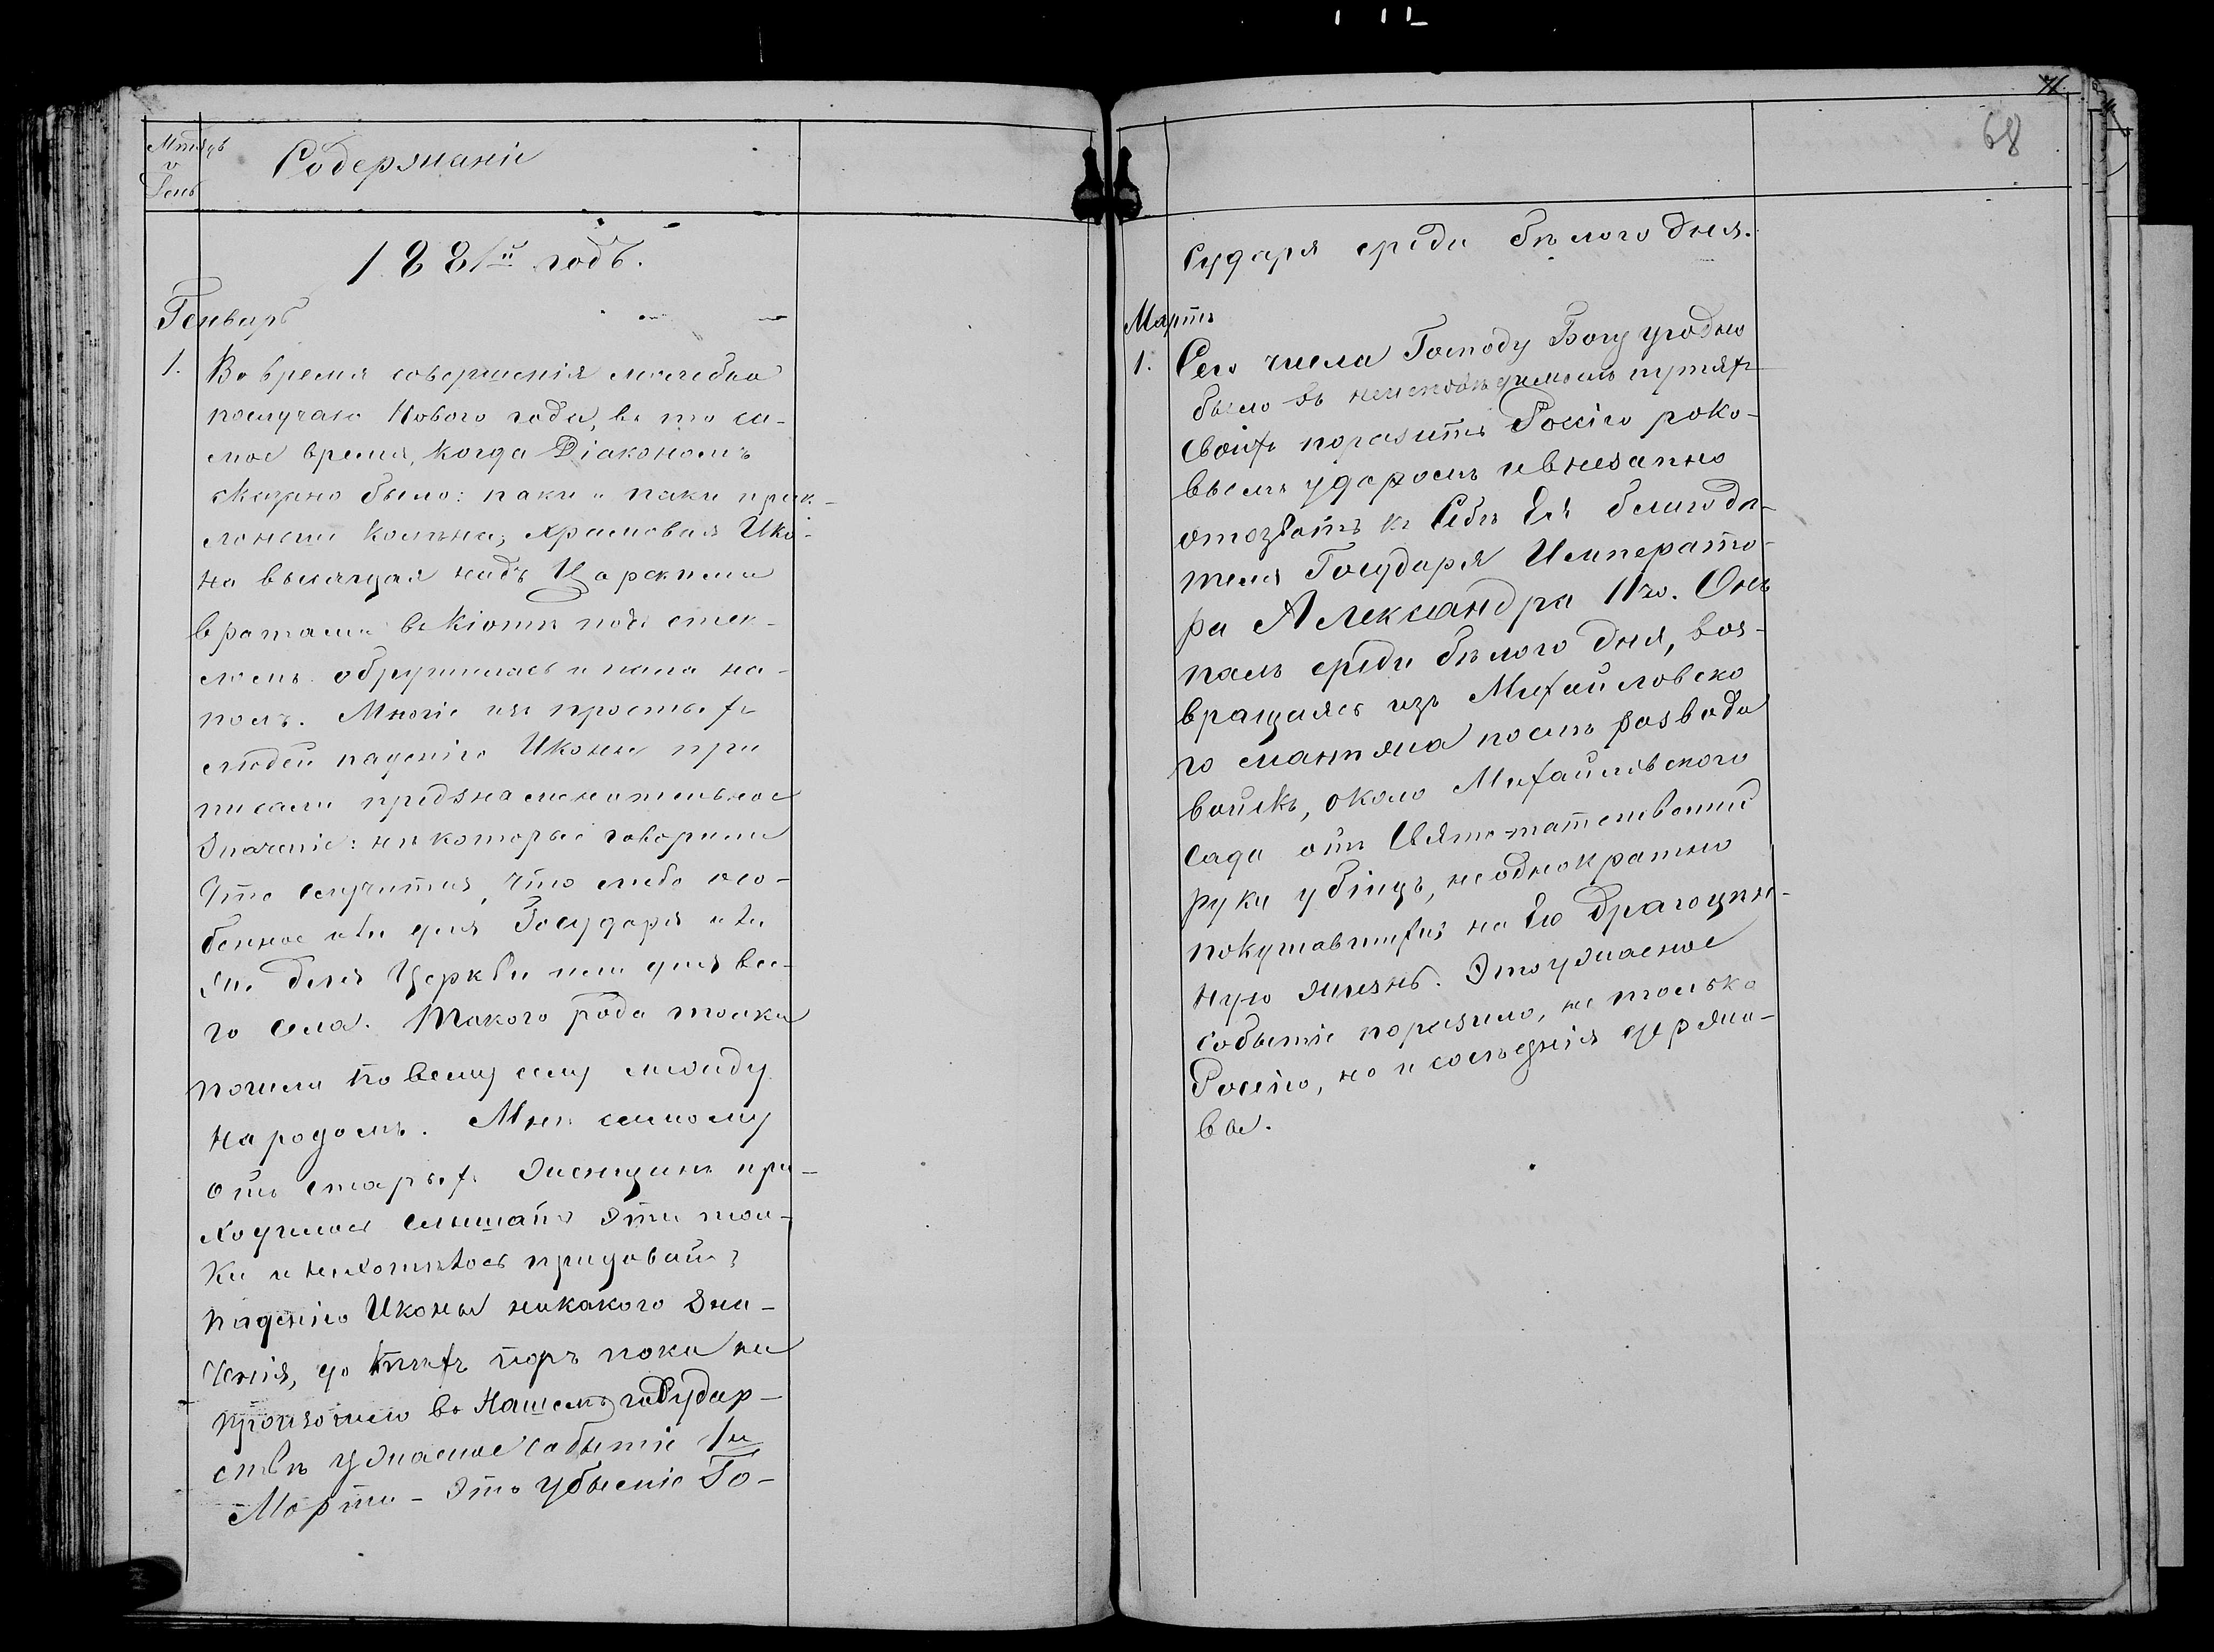 Мѣсяцъ
и
День
Содержаніе
1881й годъ.
Генварь
1. Во время совершенія молебна
послучаю Нового года, въ то са-
мое время, когда Діакономъ
сказано было: паки и паки прек-
лонши колѣна, храмовая Ико-
на висящая надъ Царскими
вратами въ кіотѣ подъ стек-
ломъ обрушилась и пала на-
полъ. Многіе изъ простыхъ
людей паденію Иконы при
писали предзнаменательное
значеніе: нѣкоторые говорили
что случится, что либо осо-
бенное или для Государя или
для Церкви или для все-
го села. Такого рода толки
пошли по всему селу между
народомъ. Мнѣ самому
отъ старыхъ женщинъ при-
ходилось слышать эти тол-
ки и нехотѣлось придавать
паденію Иконы никакого зна-
ченія, до тѣхъ поръ пока не
произошло въ Нашемъ государ-
ствѣ ужасное событіе 1го
Марта - это убьеніе Го-
71.
68
сударя среди бѣлого дня.
Мартъ
1. Сего числа Господу Богу угодно
было въ неисповѣдимыхъ путяхъ
своихъ поразить Россію роко-
вымъ ударомъ и внезапно
отозвать къ Себѣ Ея благодѣ-
теля Государя Императо-
ра Александра IIго. Онъ
палъ среди бѣлого дня, воз-
вращаясь изъ Михайловско
го манежа послѣ развода
войскъ, около Михайловского
сада отъ Свято-татственной
руки убійцъ, неоднократно
покушавшихся на Его драгоцѣн-
ную жизнь. Это ужасное
событіе поразило, не только
Россію, но и сосѣднія держа-
вы.